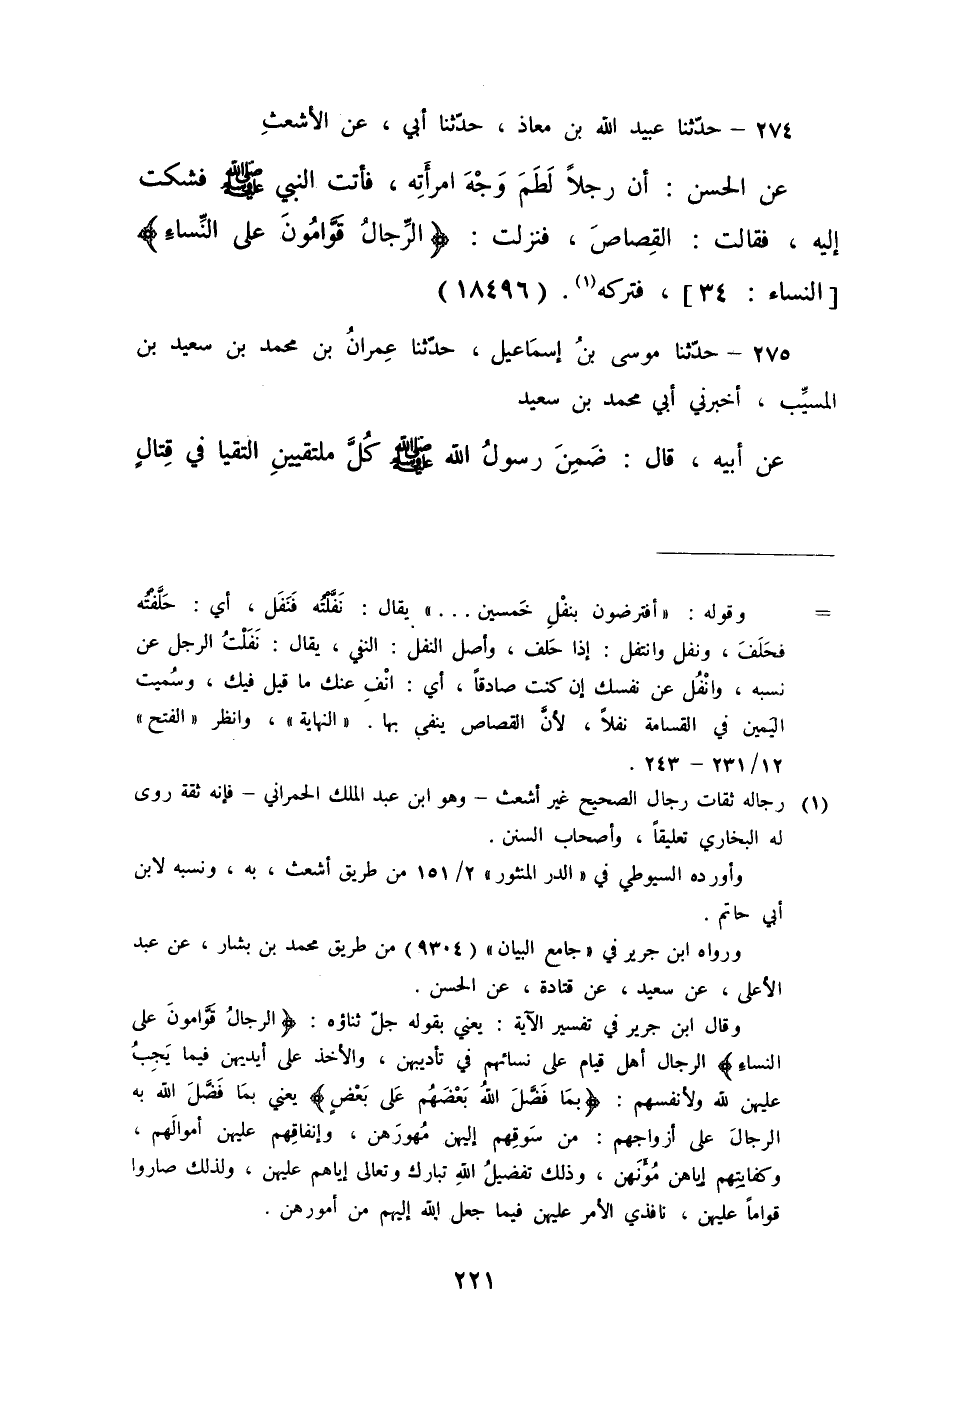 ٢٧٤ – حدّثنا عبيد الله بن معاذ ، حدّثنا أبي ، عن الأشعثِ
عن الحسن : أن رجلاً لَطَمَ وَجْهَ امرأَتِه ، فأتت النبي ﷺ فشكت
إليه ، فقالت : القِصاصَ ، فنزلت : ﴿ الرِّجالُ قَوَّامُونَ على النِّساءِ ﴾
[ النساء : ٣٤ ] ، فتركه(١) . ( ١٨٤٩٦ )
٢٧٥ – حدّثنا موسى بنُ إسمَاعيل ، حدّثنا عِمرانُ بن محمد بن سعيد بن
المسيِّب ، أخبرني أبي محمد بن سعيد
عن أبيه ، قال : ضَمِنَ رسولُ الله ﷺ كُلَّ ملتقيينِ التقيا في قِتالٍ
= وقوله : «أفترضون بنفْلِ خَمسين ...» يقال : نَفَّلْتُه فَنَفَل ، أي : حَلَّفْتُه
فحَلَفَ ، ونفل وانتفل : إذا حَلف ، وأصل النفل : النفي ، يقال : نَفَلْتُ الرجل عن
نسبه ، وانْفُل عن نفسك إن كنت صادقاً ، أي : انْفِ عنك ما قيل فيك ، وسُميت
اليَمين في القسامة نفلاً ، لأنَّ القصاص ينفي بها . «النهاية» ، وانظر «الفتح»
١٢/ ٢٣١ – ٢٤٣ .
(١) رجاله ثقات رجال الصحيح غير أشعث – وهو ابن عبد الملك الحمراني – فإنه ثقة روى
له البخاري تعليقاً ، وأصحاب السنن .
وأورده السيوطي في «الدر المنثور» ٢/ ١٥١ من طريق أشعث ، به ، ونسبه لابن
أبي حاتم .
ورواه ابن جرير في «جامع البيان» (٩٣٠٤) من طريق محمد بن بشار ، عن عبد
الأعلى ، عن سعيد ، عن قتادة ، عن الحسن .
وقال ابن جرير في تفسير الآية : يعني بقوله جلّ ثناؤه : ﴿ الرجالُ قَوَّامونَ على
النساءِ ﴾ الرجال أهل قيام على نسائهم في تأديبهن ، والأخذ على أيديهن فيما يَجِبُ
عليهن لله ولأنفسهم : ﴿ بِمَا فَضَّلَ اللهُ بَعْضَهُم عَلى بَعْضٍ ﴾ يعني بمَا فَضَّلَ الله به
الرجالَ على أزواجهم : من سَوقِهم إليهن مُهورَهن ، وإنفاقِهم عليهن أموالَهم ،
وكفايتِهم إياهن مُؤنَهن ، وذلك تفضيلُ اللهِ تبارك وتعالى إياهم عليهن ، ولذلك صاروا
قواماً عليهن ، نافذي الأمر عليهن فيما جعل الله إليهم من أمورهن .
٢٢١